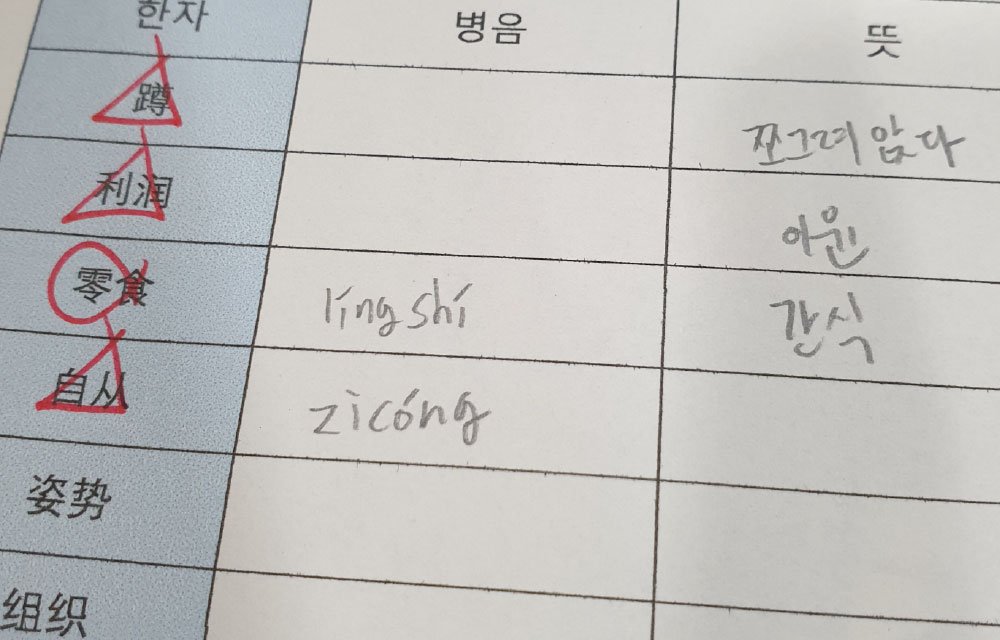 한자 병음 뜻
蹲 쪼그려 앉다
利润 이윈
零食 língshí 간식
自从 zìcóng
姿势
组织